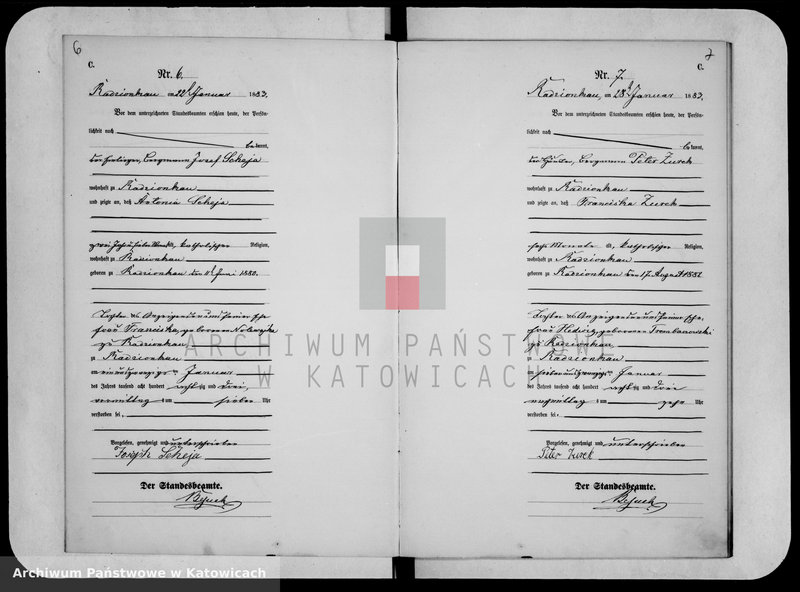 6
C.
Nr. 6.
Radzionkau am 22 Januar 1883.
Vor dem unterzeichneten Standesbeamten erschien heute, der Persön-
lichkeit nach
be kannt,
der Bergmann Josef Scheja
wohnhaft zu Radzionkau
und zeigte an, daß Antonia Scheja
katholischer Religion,
wohnhaft zu Radzionkau
geboren zu Radzionkau den 11 Juni 1880.
Tochter des Anzeigenden und seiner Ehe
frau Franziska, geborenen
zu Radzionkau
zu Radzionkau
am ein und zwanzigsten Januar
des Jahres tausend acht hundert acht zig und drei
vormittag s um sieben Uhr
verstorben sei.
Vorgelesen, genehmigt und unterschrieben
Joseph Scheja
Der Standesbeamte.
7
C.
Nr. 7.
Radzionkau, am 28 Januar 1883.
Vor dem unterzeichneten Standesbeamten erschien heute, der Persön-
lichkeit nach
be kannt,
der Häusler, Bergmann Peter Zurek
wohnhaft zu Radzionkau
und zeigte an, daß Franciska Zurek
sechs Monate alt, katholischer Religion,
wohnhaft zu Radzionkau
geboren zu Radzionkau den 17. August 1882
Tochter des Anzeigenden und seiner Ehe
frau Hedwig, geborenen
zu Radzionkau
zu Radzionkau
am sieben und zwanzigsten Januar
des Jahres tausend acht hundert acht zig und drei
nachmittag s um zehn Uhr
verstorben sei.
Vorgelesen, genehmigt und unterschrieben
Peter Zurek
Der Standesbeamte.
ARCHIWUM PAŃSTWOWE
W KATOWICACH
Archiwum Państwowe w Katowicach